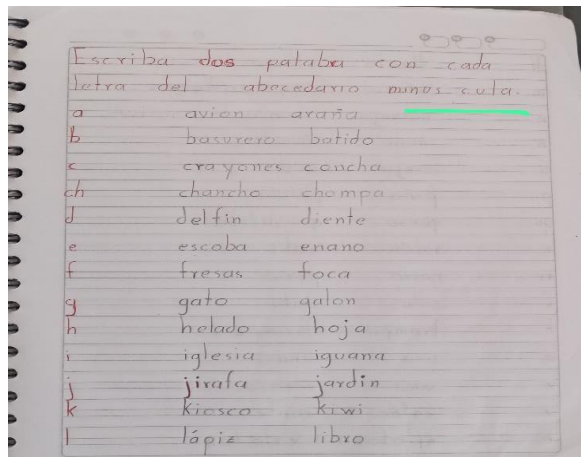 Escriba dos palabra con cada
letra del abecedario minuscula.
a avion araña
b basurero batido
c crayones concha
ch chancho chompa
d delfin diente
e escoba enano
f fresas foca
g gato galon
h helado hoja
i iglesia iguana
j jirafa jardin
k kiosco kiwi
l lápiz libro